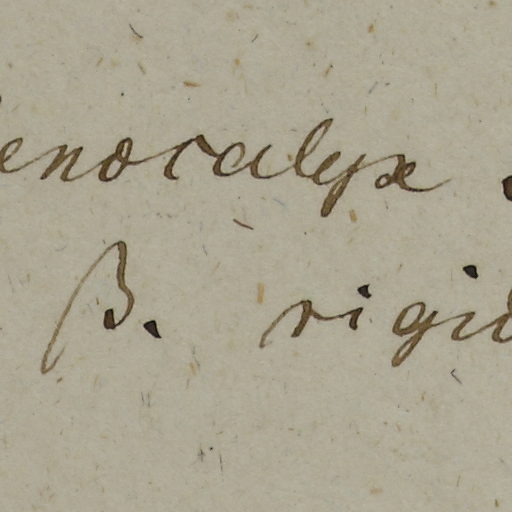 enocalyx
β. rigid